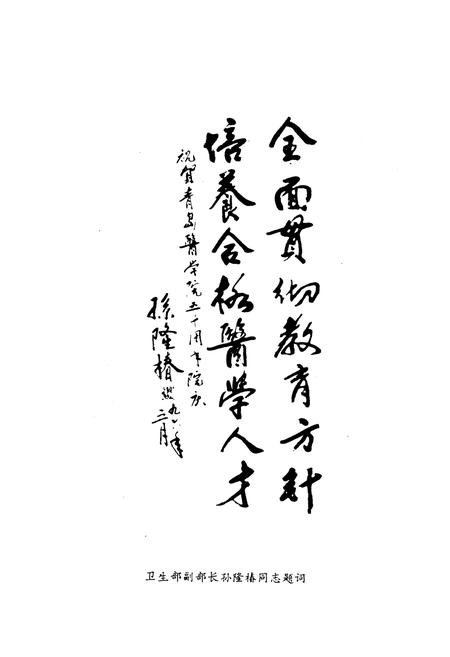 全面貫彻教育方針
培養合格醫學人才
祝贺青島醫学院五十周年院庆
孫隆椿
九六年
三月
卫生部副部长孙隆椿同志题词